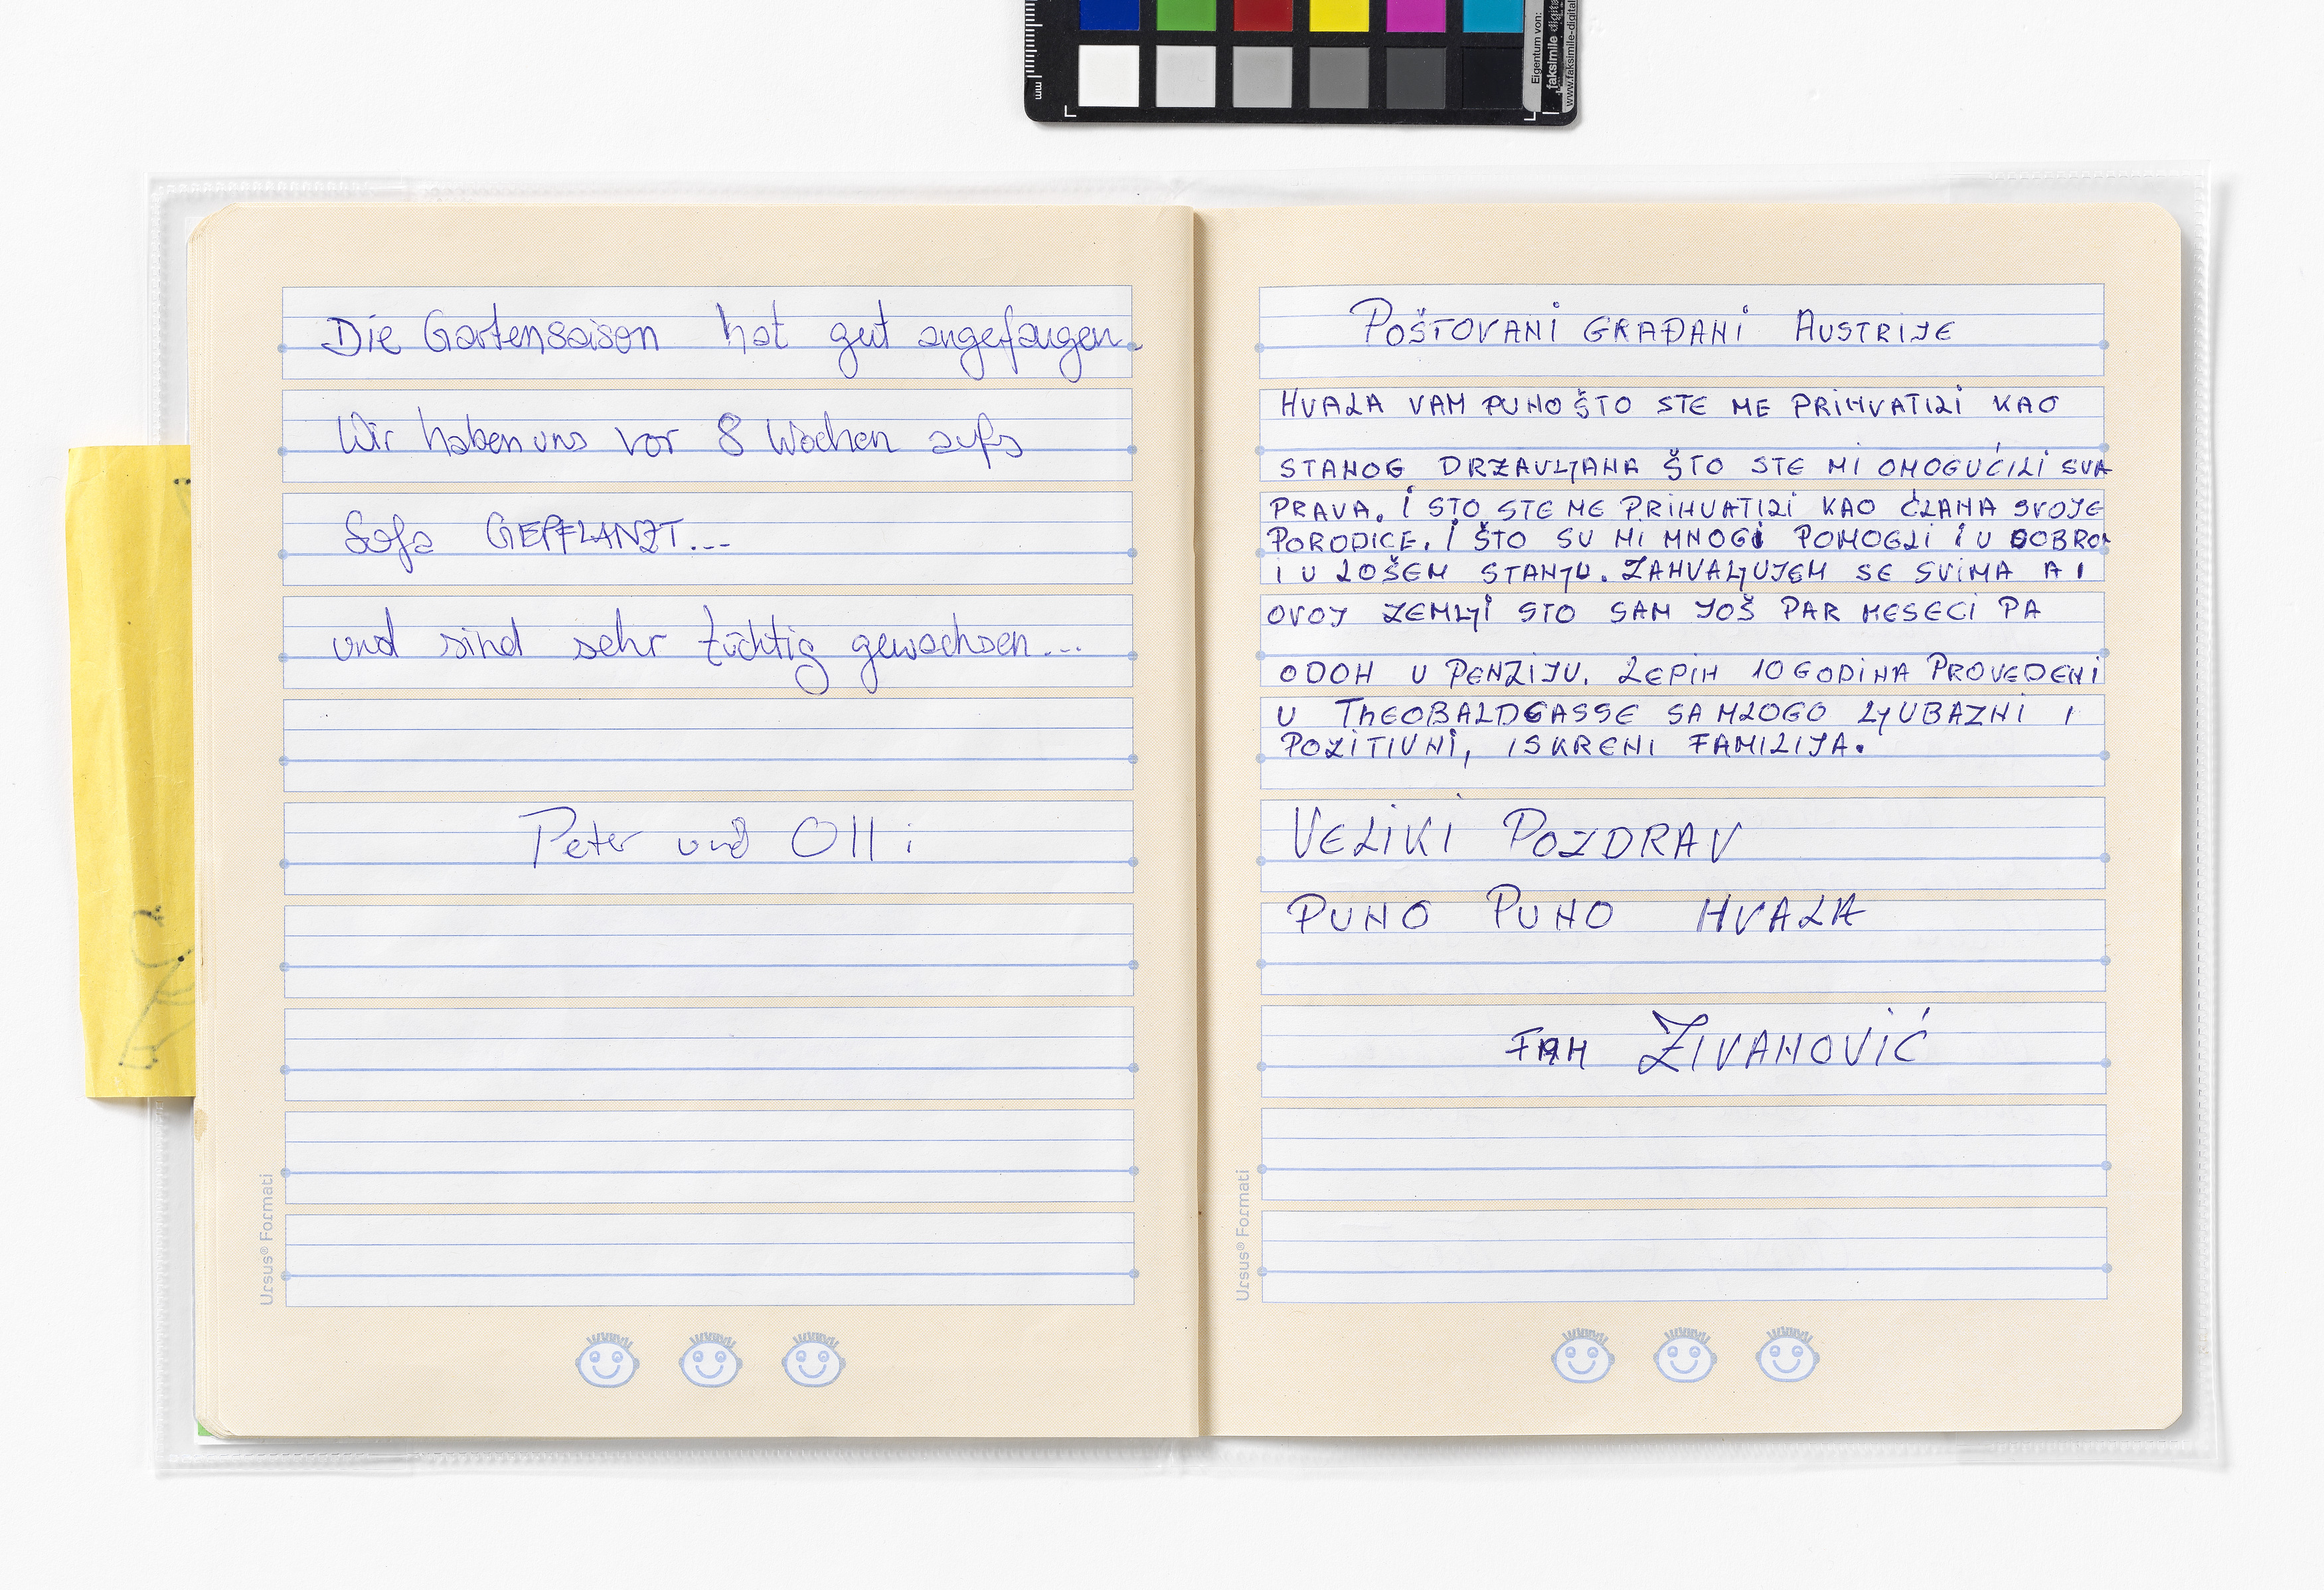 Eigentum von:
faksimile digital
www.faksimile-digital
mm
Die Gartensaison hat gut angefangen.
Wir haben uns vor 8 Wochen aufs
Sofa GEPFLANZT...
und sind sehr tüchtig gewachsen...
Peter und Olli
Ursus® Formati
POŠTOVANI GRAĐANI AUSTRIJE
HVALA VAM PUNO ŠTO STE ME PRIHVATILI KAO
STANOG DRZAVLJANA ŠTO STE MI OMOGUĆILI SVA
PRAVA. I STO STE ME PRIHVATILI KAO ĆLANA SVOJE
PORODICE. I ŠTO SU MI MNOGI POMOGLI I U DOBROM
I U LOŠEM STANJU. ZAHVALJUJEM SE SVIMA A I
OVOJ ZEMLJI STO SAM JOŠ PAR MESECI PA
ODOH U PENZIJU. LEPIH 10 GODINA PROVEDENI
U THEOBALDGASSE SA MLOGO LJUBAZNI I
POZITIVNI, ISKRENI FAMILIJA.
VELIKI POZDRAV
PUNO PUNO HVALA
FAM ŽIVANOVIĆ
Ursus® Formati